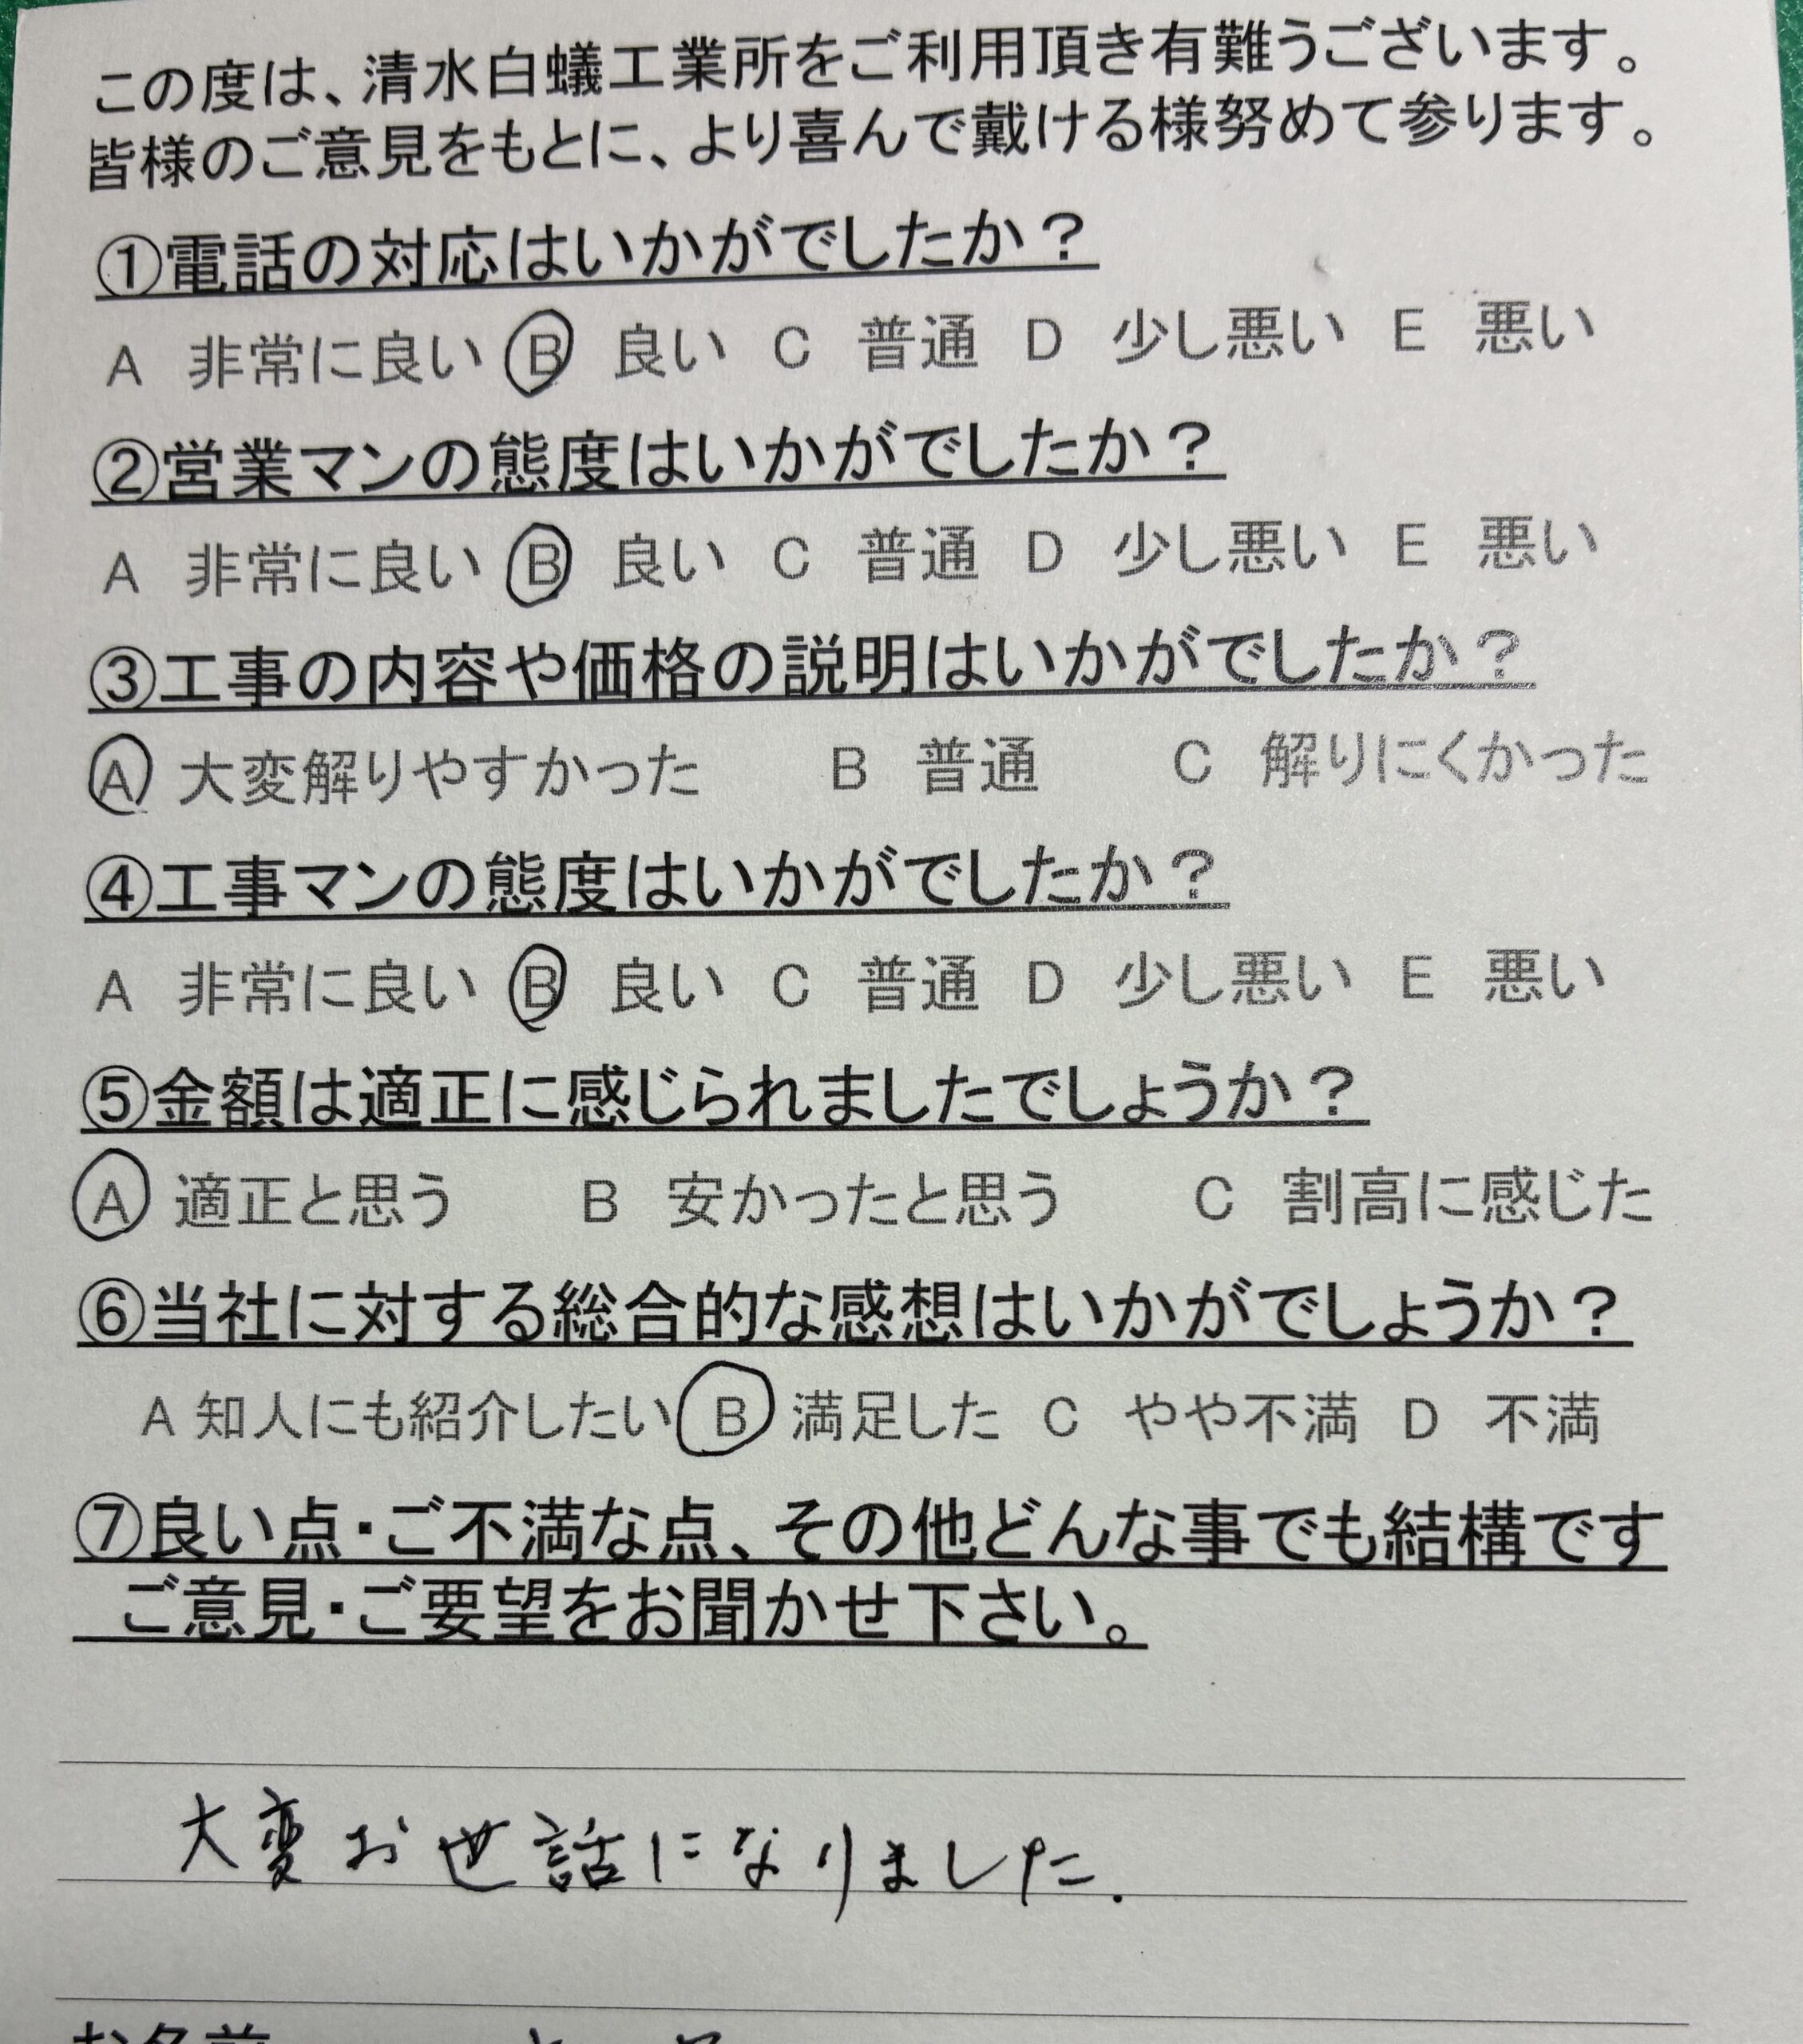 この度は、清水白蟻工業所をご利用頂き有難うございます。
皆様のご意見をもとに、より喜んで戴ける様努めて参ります。
①電話の対応はいかがでしたか？
A 非常に良い B 良い C 普通 D 少し悪い E 悪い
②営業マンの態度はいかがでしたか？
A 非常に良い B 良い C 普通 D 少し悪い E 悪い
③工事の内容や価格の説明はいかがでしたか？
A 大変解りやすかった B 普通 C 解りにくかった
④工事マンの態度はいかがでしたか？
A 非常に良い B 良い C 普通 D 少し悪い E 悪い
⑤金額は適正に感じられましたでしょうか？
A 適正と思う B 安かったと思う C 割高に感じた
⑥当社に対する総合的な感想はいかがでしょうか？
A 知人にも紹介したい B 満足した C やや不満 D 不満
⑦良い点・ご不満な点、その他どんな事でも結構です
ご意見・ご要望をお聞かせ下さい。
大変お世話になりました.
お名前